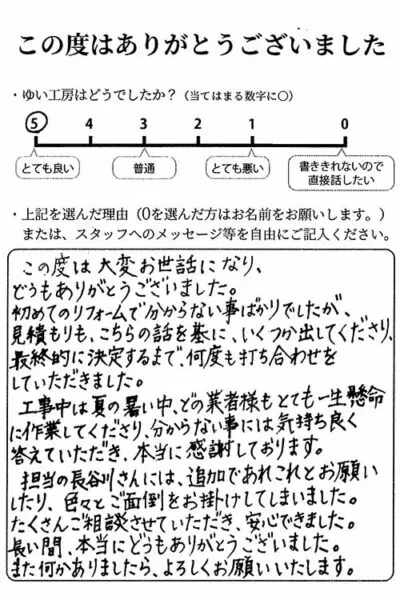 この度はありがとうございました
・ゆい工房はどうでしたか？（当てはまる数字に○）
5 4 3 2 1 0
とても良い 普通 とても悪い 書ききれないので
直接話したい
・上記を選んだ理由（0を選んだ方はお名前をお願いします。）
または、スタッフへのメッセージ等を自由にご記入ください。
この度は大変お世話になり、
どうもありがとうございました。
初めてのリフォームで分からない事ばかりでしたが、
見積もりも、こちらの話を基に、いくつか出してくださり、
最終的に決定するまで、何度も打ち合わせを
していただきました。
工事中は夏の暑い中、どの業者様もとても一生懸命
に作業してくださり、分からない事には気持ち良く
答えていただき、本当に感謝しております。
担当の長谷川さんには、追加であれこれとお願い
したり、色々とご面倒をお掛けしてしまいました。
たくさんご相談させていただき、安心できました。
長い間、本当にどうもありがとうございました。
また何かありましたら、よろしくお願いいたします。